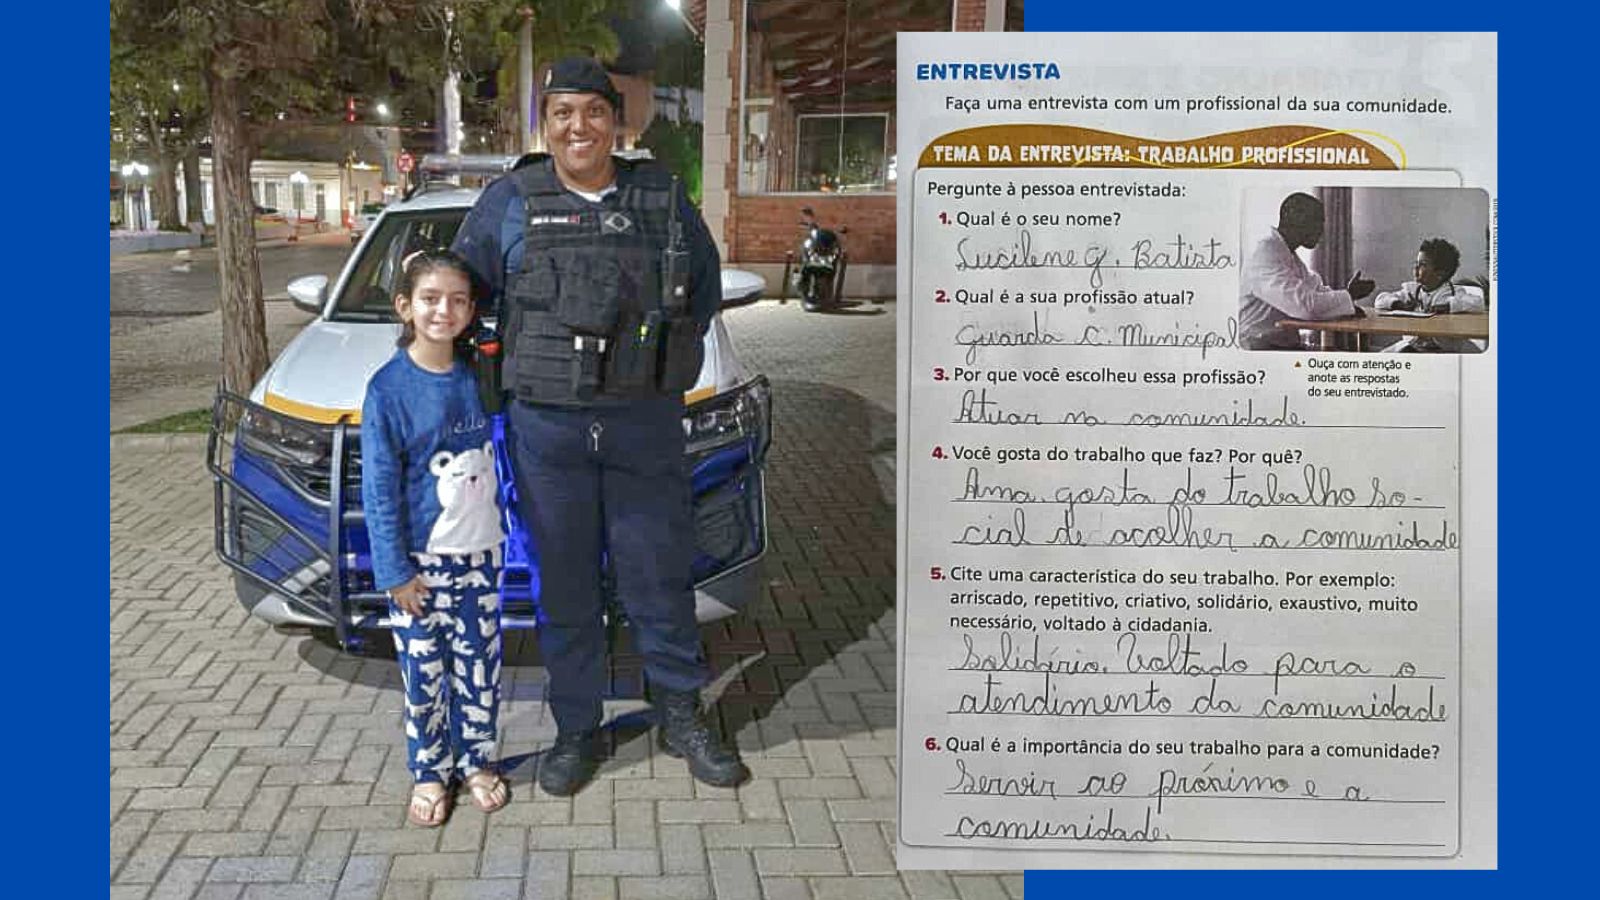 ENTREVISTA
Faça uma entrevista com um profissional da sua comunidade.
TEMA DA ENTREVISTA: TRABALHO PROFISSIONAL
Pergunte à pessoa entrevistada:
1. Qual é o seu nome?
Lucilene G. Batista
2. Qual é a sua profissão atual?
Guarda C. Municipal
Ouça com atenção e
anote as respostas
do seu entrevistado.
3. Por que você escolheu essa profissão?
Atuar na comunidade.
4. Você gosta do trabalho que faz? Por quê?
Ama. gosta do trabalho so-
cial de acolher a comunidade
5. Cite uma característica do seu trabalho. Por exemplo:
arriscado, repetitivo, criativo, solidário, exaustivo, muito
necessário, voltado à cidadania.
Solidário. Voltado para o
atendimento da comunidade
6. Qual é a importância do seu trabalho para a comunidade?
Servir ao próximo e a
comunidade.